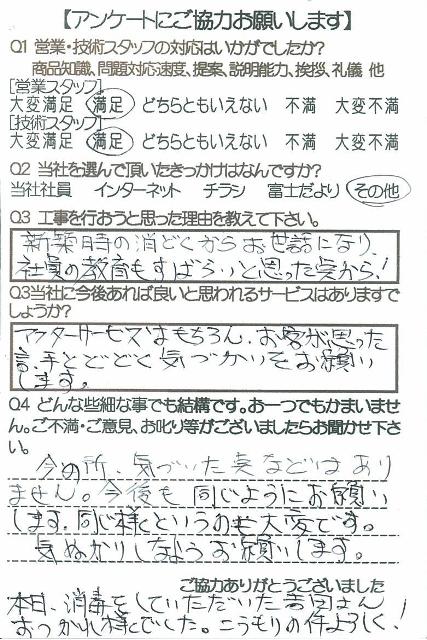 【アンケートにご協力お願いします】
Q1 営業・技術スタッフの対応はいかがでしたか?
商品知識、問題対応速度、提案、説明能力、挨拶、礼儀 他
[営業スタッフ]
大変満足 満足 どちらともいえない 不満 大変不満
[技術スタッフ]
大変満足 満足 どちらともいえない 不満 大変不満
Q2 当社を選んで頂いたきっかけはなんですか?
当社社員 インターネット チラシ 富士だより その他
Q3 工事を行おうと思った理由を教えて下さい。
新築時の消どくからお世話になり、
社員の教育もすばらいと思った点から!
Q3当社に今後あれば良いと思われるサービスはありますで
しょうか?
アフターサービスはもちろん、お客が思った
事、手とどどく気づかいをお願い
します。
Q4 どんな些細な事でも結構です。お一つでもかまいませ
ん。ご不満・ご意見、お叱り等がございましたらお聞かせ下さ
い。
今の所、気づいた事などはあり
ません。今後も同じようにお願い
します。同じ様にというのも大変です。
気ぬかりしなようお願いします。
ご協力ありがとうございました
本日、消毒をしていただいた
おつかれ様でした。こうもりの件よろしく!